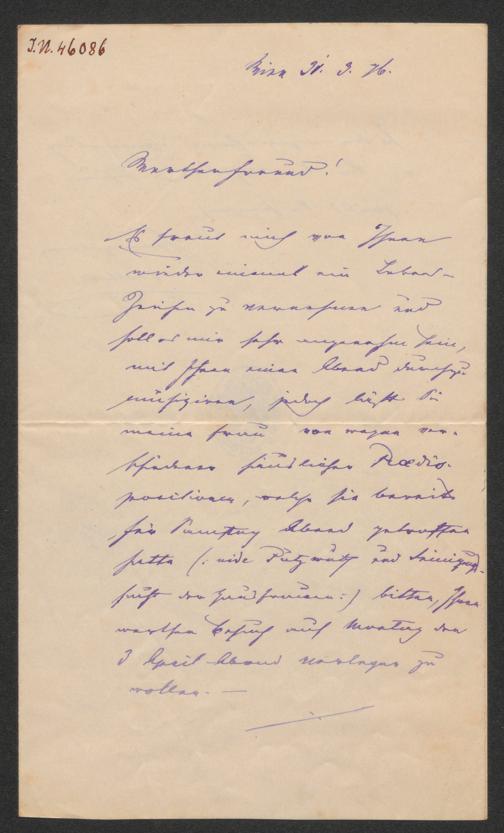 I.N. 46086
Wien 31. 3. 76.
Werther Freund!
Es freut mich von Ihnen
wieder einmal ein Lebens-
Zeichen zu vernehmen und
soll es mir sehr angenehm sein,
mit Ihnen einen Abend durchzu-
musiziren, jedoch läßt Sie
meine Frau von wegen ver-
schiedener häuslicher Prædis-
positionen, welche sie bereits
für Samstag Abend getroffen
hatte (: vide Putzwuth und Reinigungs-
sucht der Hausfrauen :) bitten, Ihren
werthen Besuch auf Montag den
3 April Abend verlegen zu
wollen. —